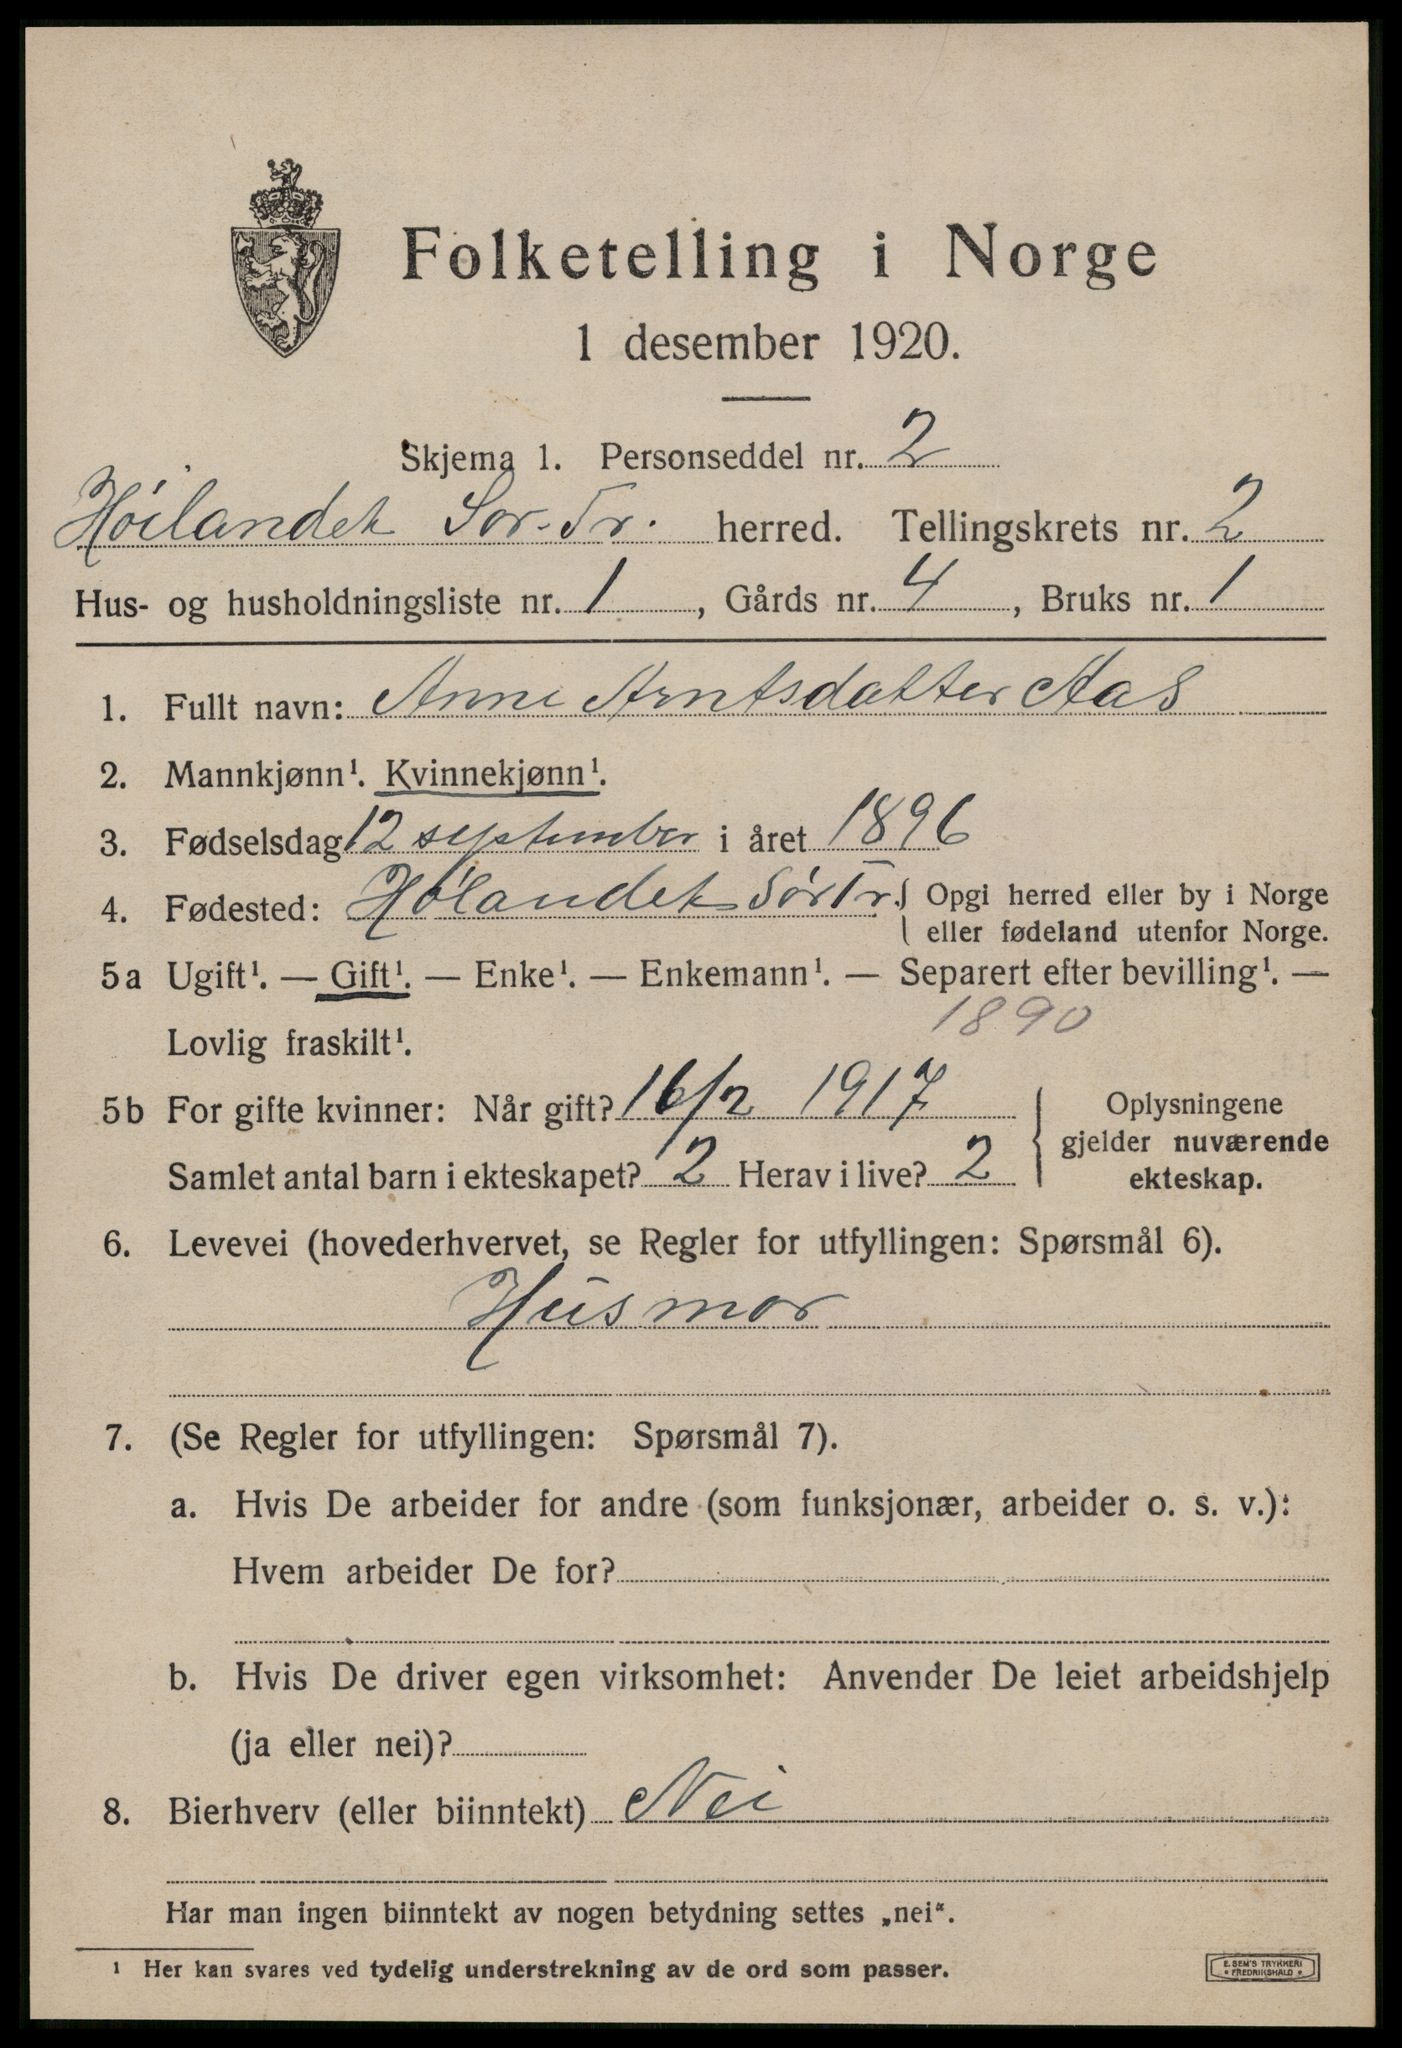 Folketelling i Norge
1 desember 1920.
Skjema 1. Personseddel nr. 2
Høilandet Sør-Tr. herred. Tellingskrets nr. 2
Hus- og husholdningsliste nr. 1, Gårds nr. 4, Bruks nr. 1
1. Fullt navn: Anne Arntsdatter Aas
2. Mannkjønn¹. Kvinnekjønn¹.
3. Fødselsdag 12 september i året 1896
4. Fødested: Hølandet Sør Tr. { Opgi herred eller by i Norge
eller fødeland utenfor Norge.
5a Ugift¹. — Gift¹. — Enke¹. — Enkemann¹. — Separert efter bevilling¹. —
Lovlig fraskilt¹. 1890
5b For gifte kvinner: Når gift? 16/2 1917
Samlet antal barn i ekteskapet? 2 Herav i live? 2
{ Oplysningene
gjelder nuværende
ekteskap.
6. Levevei (hovederhvervet, se Regler for utfyllingen: Spørsmål 6).
Husmor
7. (Se Regler for utfyllingen: Spørsmål 7).
a. Hvis De arbeider for andre (som funksjonær, arbeider o. s. v.):
Hvem arbeider De for?
b. Hvis De driver egen virksomhet: Anvender De leiet arbeidshjelp
(ja eller nei)?
8. Bierhverv (eller biinntekt) Nei
Har man ingen biinntekt av nogen betydning settes „nei“.
¹ Her kan svares ved tydelig understrekning av de ord som passer.
E. SEM'S TRYKKERI
• FREDRIKSHALD •